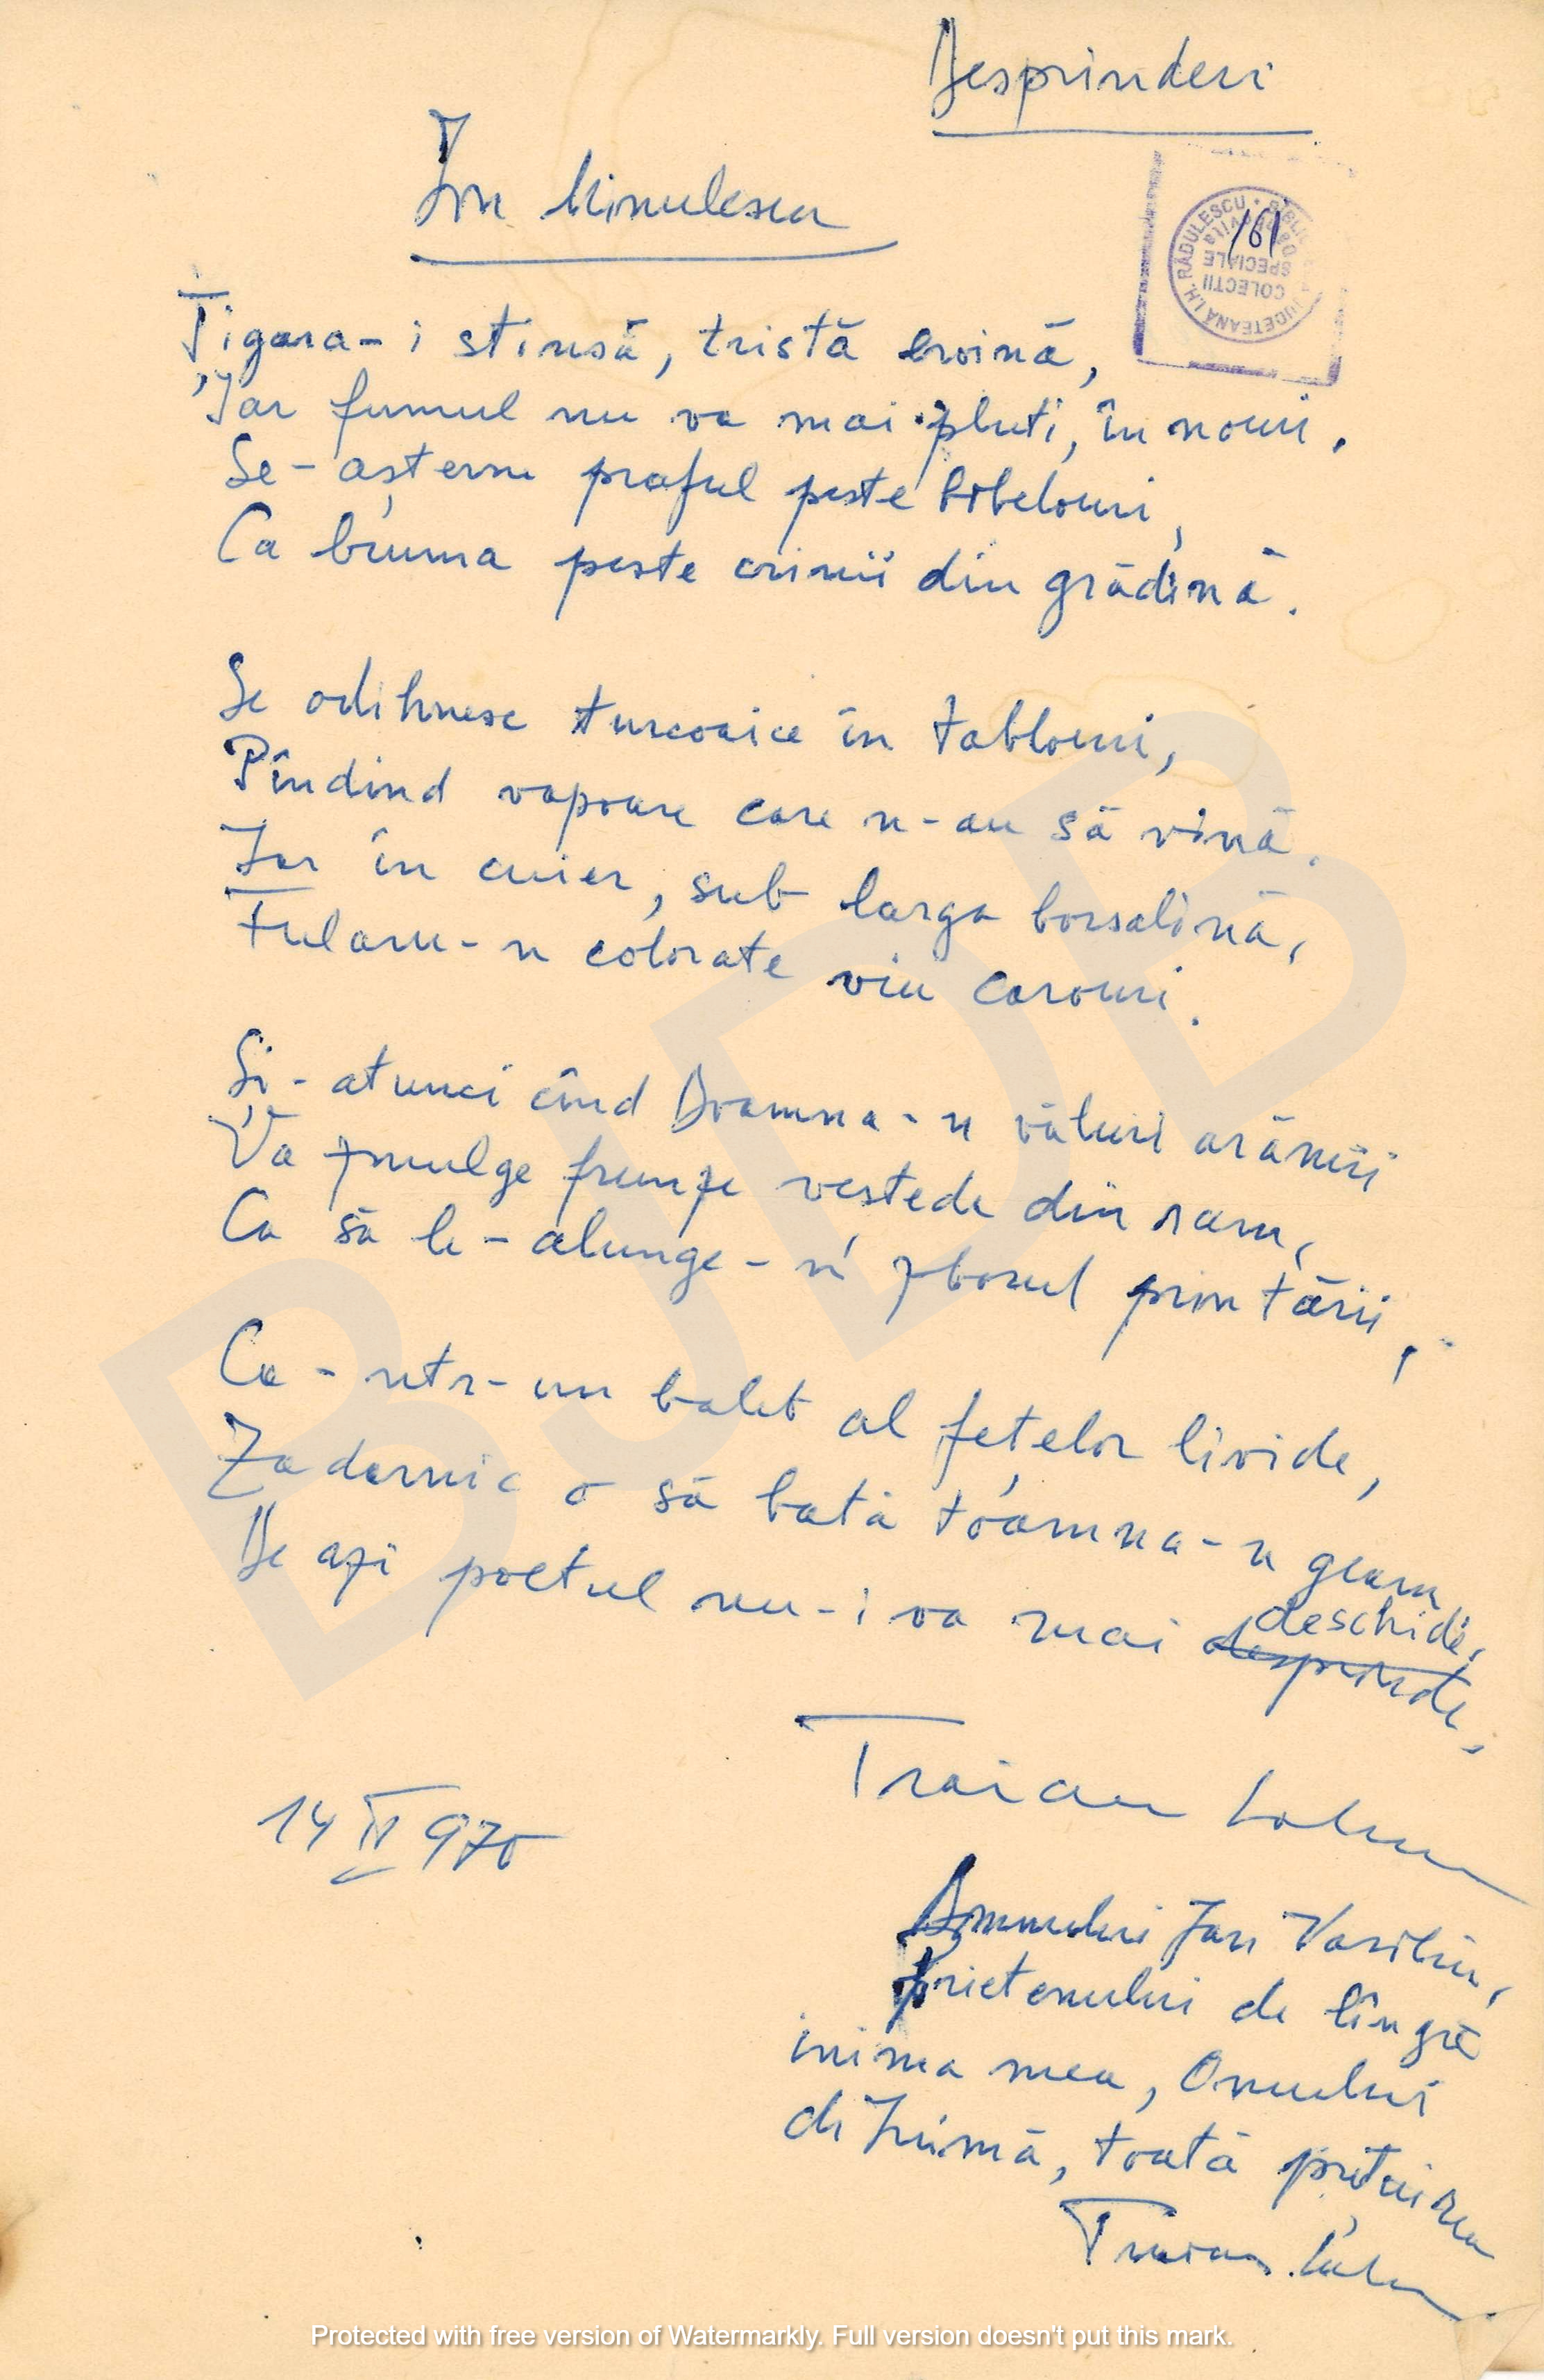 Desprinderi
Ion Minulescu
161
Țigara-i stinsă, tristă eroină,
Iar fumul nu va mai pluti, în nouri.
Se-aștern praful peste bibelouri,
Ca bruma peste crinii din grădină.
Se odihnesc turcoaice în tablouri,
Pîndind vapoare care n-au să vină.
Iar în cuier, sub larga borsalină,
Fularu-n colorate viu carouri.
Și-atunci cînd Doamna-n văluri arămii
Va smulge frunze vestede din ram,
Ca să le-alunge-n zborul prin tării,
Ca-ntr-un balet al fețelor livide,
Zadarnic o să bată toamna-n geam
De azi poetul nu-i va mai deschide.
desprinde.
Traian
14 II 970
Domnului Jan Vasiliu,
prietenului de lîngă
inima mea, Omului
de Inimă, toată prețuirea
Traian
BJDB
COLECTII
SPECIALE
BIBLIOTECA JUDEȚEANĂ I.H. RĂDULESCU
Protected with free version of Watermarkly. Full version doesn't put this mark.